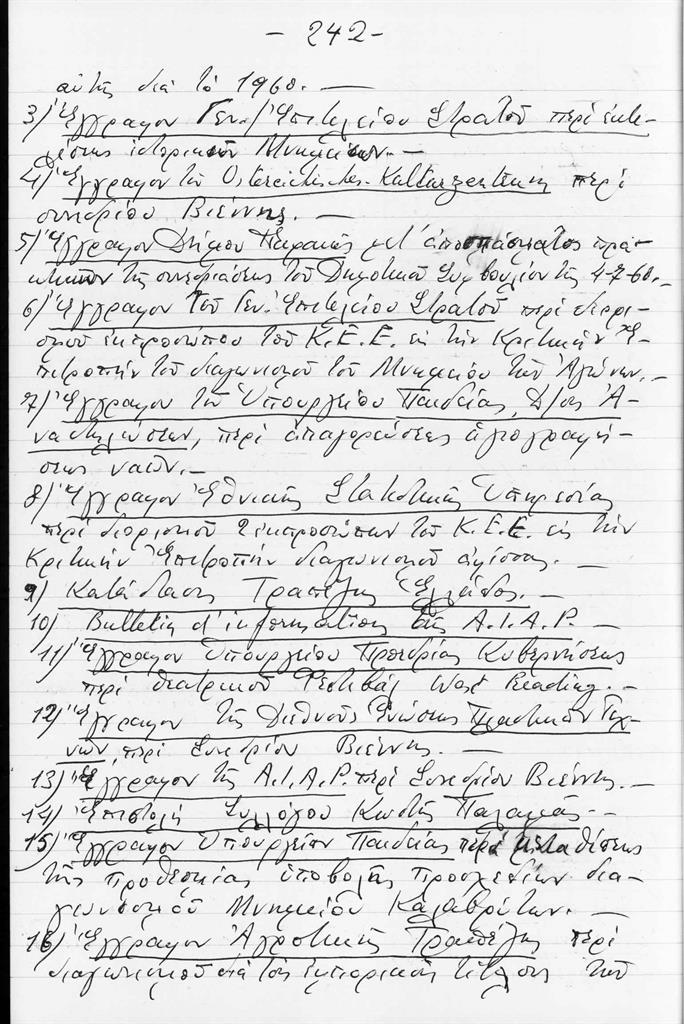 - 242 -
αὐτῆς διὰ τὸ 1960. —
3) Ἔγγραφον Γεν. Ἐπιτελείου Στρατοῦ περὶ ἐκθέ-
σεως ἱστορικῶν Μνημείων. —
4) Ἔγγραφον τοῦ Östereichisches Kulturzentrums περὶ
συνεδρίου Βιέννης. —
5) Ἔγγραφον Δήμου Πειραιῶς μετ' ἀποσπάσματος πρα-
κτικῶν τῆς συνεδριάσεως τοῦ Δημοτικοῦ Συμβουλίου τῆς 4-7-60. —
6) Ἔγγραφον τοῦ Γεν. Ἐπιτελείου Στρατοῦ περὶ διορι-
σμοῦ ἐκπροσώπου τοῦ Κ.Ε.Ε. εἰς τὴν Κριτικὴν Ἐ-
πιτροπὴν τοῦ διαγωνισμοῦ τοῦ Μνημείου τῶν Ἀγώνων. —
7) Ἔγγραφον τοῦ Ὑπουργείου Παιδείας, Δ/σις Ἀ-
ναστηλώσεων, περὶ ἀπαγορεύσεως ἁγιογραφή-
σεως ναῶν. —
8) Ἔγγραφον Ἐθνικῆς Στατιστικῆς Ὑπηρεσίας
περὶ διορισμοῦ 2 ἐκπροσώπων τοῦ Κ.Ε.Ε. εἰς τὴν
Κριτικὴν Ἐπιτροπὴν διαγωνισμοῦ ἀφίσσας. —
9) Κατάστασις Τραπέζης Ἑλλάδος. —
10) Bulletin d'information τῆς A.I.A.P. —
11) Ἔγγραφον Ὑπουργείου Προεδρίας Κυβερνήσεως
περὶ θεατρικοῦ Φεστιβὰλ West Reading. —
12) Ἔγγραφον τῆς Διεθνοῦς Ἑνώσεως Πλαστικῶν Τεχ-
νῶν, περὶ Συνεδρίου Βιέννης. —
13) Ἔγγραφον τῆς A.I.A.P. περὶ Συνεδρίου Βιέννης. —
14) Ἐπιστολὴ Συλλόγου Κωστῆς Παλαμᾶς. —
15) Ἔγγραφον Ὑπουργείου Παιδείας περὶ μεταθέσεως
τῆς προθεσμίας ὑποβολῆς προσχεδίων δια-
γωνισμοῦ Μνημείου Καλαβρύτων. —
16) Ἔγγραφον Ἀγροτικῆς Τραπέζης περὶ
διαγωνισμοῦ διὰ τὸς ἐμπορικῆς τίτλους τῶν